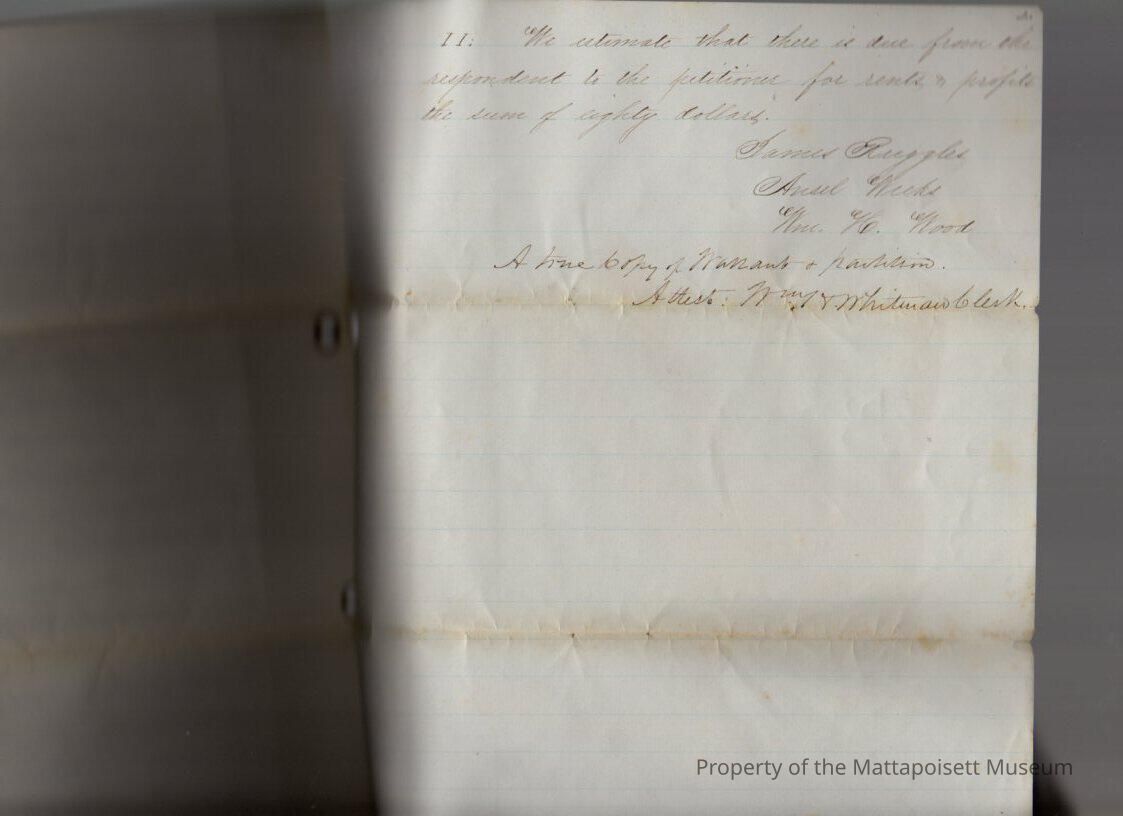 11: We estimate that there is due from the
respondent to the petitioner for rents & profits
the sum of eighty dollars.
James Ruggles
Ansel Weeks
Wm. H. Wood
A true Copy of Warrant & partition.
Attest: Whitman Clerk.
Property of the Mattapoisett Museum